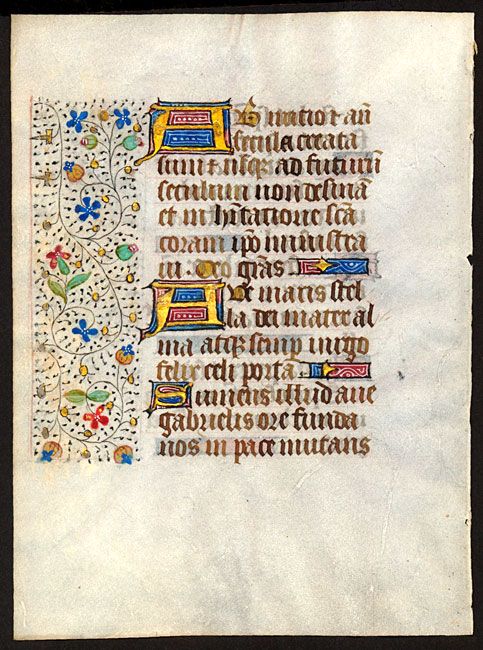 Ab initio et an
secula creata
sum et usqȝ ad futurū
seculum non desinā
et in hītatione scā
coram ipo ministra
ui. Deo grās
Ave maris stel
la dei mater al
ma atqȝ semp uirgo
felix celi porta
Sumens illud aue
gabrielis ore funda
nos in pace mutans